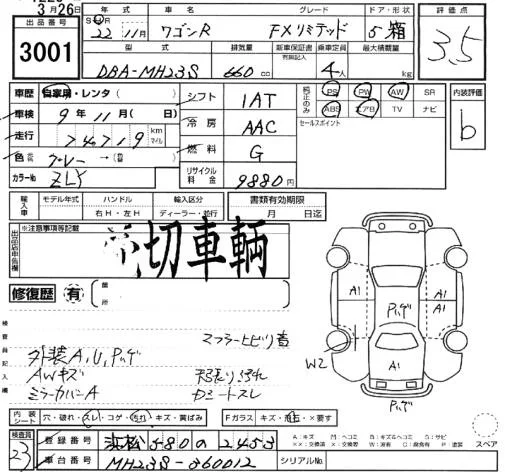 3月26日
出品番号
3001
年式 車名 グレード ドア・形状
22年 11月 ワゴンR FXリミテッド 5 箱
型式 排気量 新車保証書 乗車定員 最大積載量
有無記入
DBA-MH23S 660cc 4人 kg
評価点
3.5
車歴 自家用・レンタ( )
車検 9年 11月( 日)
走行 74719 km マイル
色 グレー →( )
カラーNo ZLY
シフト 1AT
冷房 AAC
燃料 G
リサイクル料金 9880円
純正のみ
PS PW AW SR
ABS エアB TV ナビ
セールスポイント
内装評価
b
輸入車
モデル年式 ハンドル 輸入区分
右H・左H ディーラー・並行
書類有効期限
月 日迄
※注意事項等記載
売切車輌
修復歴 有
箇所
検査員記入欄
マフラーヒビリ音
外装A,U,Pッゲ
AWキズ
ミラーカバーA
A1
Pッゲ
A1
A1
W2
A1
Pッゲ
内装シート 穴・破れ・スレ・コゲ・汚れ・キズ・黄ばみ
Fガラス キズ・飛石・×要す
スペア
検査員 23
登録番号 浜松580の2453
車台番号 MH23S-360012
シリアルNo